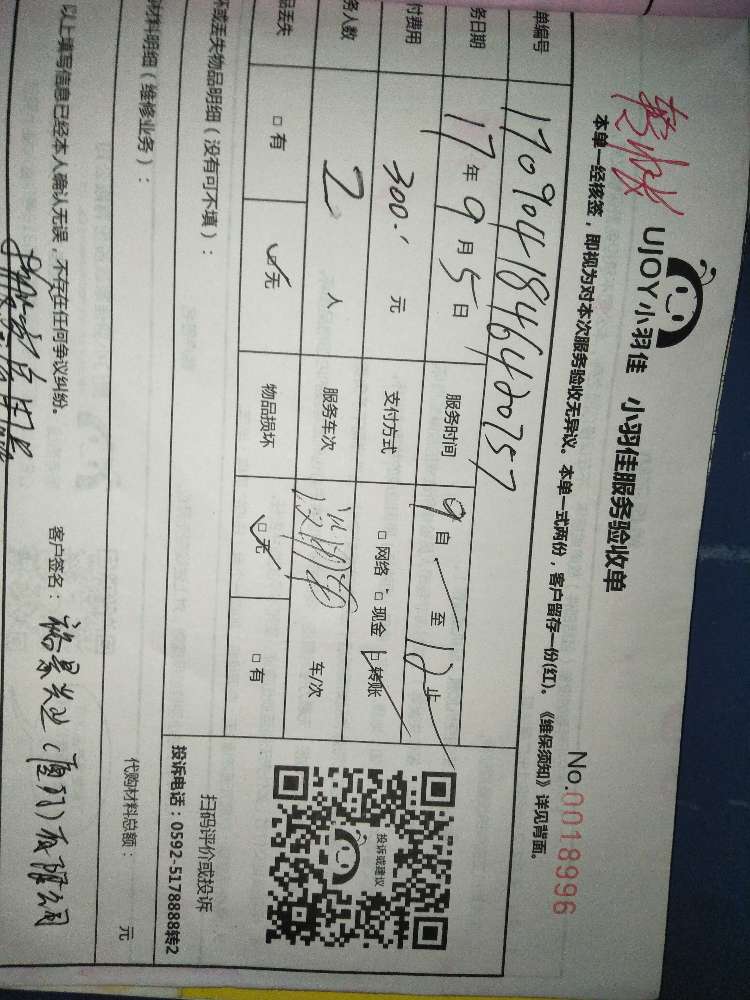 UJOY小羽佳 小羽佳服务验收单
No.0018996
本单一经核签，即视为对本次服务验收无异议。本单一式两份，客户留存一份(红)。《维保须知》详见背面。
单编号 1709041846420757
务日期 17年9月5日 服务时间 9自 至12止
付费用 300.- 元 支付方式 □网络 □现金 □转账
务人数 2 人 服务车次 车/次
品丢失 □有 □无 物品损坏 □无 □有
坏或丢失物品明细（没有可不填）：
投诉或建议
扫码评价或投诉
投诉电话：0592-5178888转2
材料明细（维修业务）：
代购材料总额： 元
以上填写信息已经本人确认无误，不存在任何争议纠纷。
客户签名： (厦门)有限公司